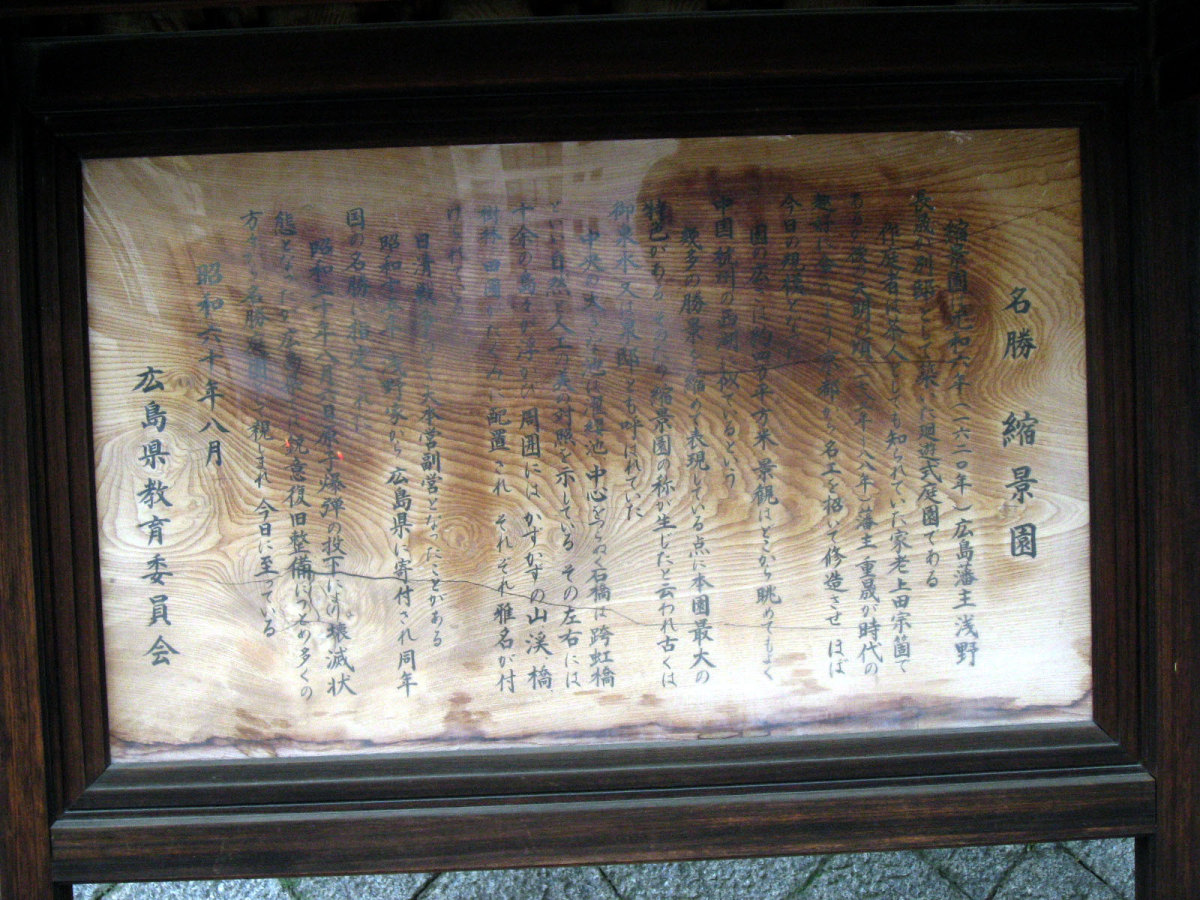 名勝 縮景園
縮景園は元和六年(一六二〇年)広島藩主浅野
長晟が別邸として築いた廻遊式庭園である
作庭者は茶人としても知られていた家老上田宗箇で
ある 後の天明の頃(一七八 八年)藩主重晟が時代の
趣好に 京都から名工を招いて修造させ ほぼ
今日の規模となった
園の広さは約四万平方米 景観はどこから眺めてもよく
中国杭州の西湖に似ているという
幾多の勝景を縮めて表現している点に本園最大の
特色がある そのため縮景園の称が生じたと云われ古くは
御泉水 又は泉邸とも呼ばれていた
中央の大きな池は濯纓池 中心をつらぬく石橋は跨虹橋
といい自然と人工の美の対照を示している その左右には
十余の島をうかべ 周囲には かずかずの山 渓 橋
樹林 田圃が 配置され それぞれ雅名が付
けられている
日清戦争 大本営副営となったことがある
昭和十五年 浅野家から 広島県に寄付され同年
国の名勝に指定された
昭和二十年八月六日原子爆弾の投下により壊滅状
態となったが広島県は鋭意復旧整備につとめ多くの
方々から名勝 園として親しまれ 今日に至っている
昭和六十年八月
広島県教育委員会